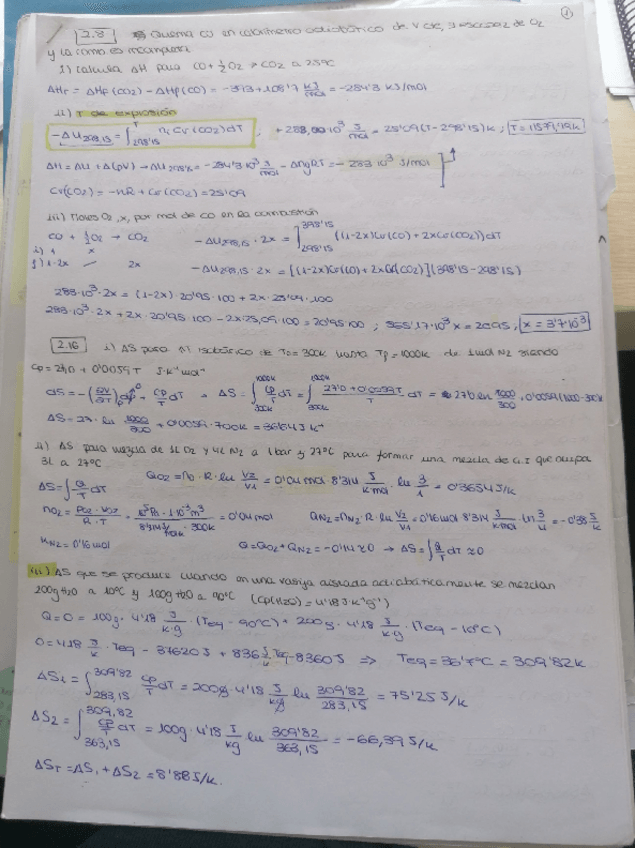 ①
2.8 Quema CO en calorímetro adiabático de V cte, 3 = escasez de O2
y la comb. es incompleta
i) calcula ΔH para CO + ½O2 → CO2 a 25ºC
ΔHr = ΔHf (CO2) - ΔHf (CO) = -393 + 108'7 kJ/mol = -284'3 kJ/mol
ii) T de explosión
-ΔU298,15 = ∫ 298'15 T ni Cv (CO2) dT ; +283,00·10³ J/mol = 25'09 (T-298'15) K ; T = 11571,19K
ΔH = ΔU + Δ(pV) → ΔU298K = -284'3·10³ J/mol - ΔngRT = -283·10³ J/mol
Cv(CO2) = -nR + Cp(CO2) = 25'09
iii) Moles O2, x, por mol de CO en la combustión
CO + ½O2 → CO2 -ΔU298,15 · 2x = ∫ 298'15 398'15 ((1-2x)Cv(CO) + 2xCv(CO2)) dT
i) 1 x
f) 1-2x — 2x -ΔU298,15 · 2x = [(1-2x)Cv(CO) + 2xCv(CO2)] (398'15 - 298'15)
283·10³·2x = (1-2x) · 20'95 · 100 + 2x · 25'09 · 100
283·10³·2x + 2x · 20'95 · 100 - 2x · 25,09 · 100 = 20'95 · 100 ; 565'17·10³ x = 2095 ; x = 3'7·10³
2.16 i) ΔS para ΔT isobárico de T0 = 300K hasta Tf = 1000K de 1 mol N2 siendo
Cp = 27,0 + 0'0059 T J·K⁻¹mol⁻¹
dS = -(∂V/∂T)p dp + Cp/T dT → ΔS = ∫ 300K 1000K Cp/T dT = ∫ 300K 1000K 27'0 + 0'0059T / T dT = 27'0 ln 1000/300 + 0'0059 (1000-300)K
ΔS = 27 · ln 1000/300 + 0'0059 · 700K = 36'64 J K⁻¹
ii) ΔS para mezcla de 1L O2 y 4L N2 a 1 bar y 27ºC para formar una mezcla de G.I que ocupa
3L a 27ºC
ΔS = ∫ Q/T dT QO2 = n0 · R · ln V2/V1 = 0'04 mol · 8'314 J/K mol · ln 3/1 = 0'3654 J/K
nO2 = PO2 · VO2 / R · T = 10⁵Pa · 1·10⁻³ m³ / 8'314 J/K mol · 300K = 0'04 mol QN2 = nN2 · R · ln V2/V1 = 0'16 mol 8'314 J/K mol · ln 3/4 = -0'38 J/K
nN2 = 0'16 mol Q = QO2 + QN2 = -0'14 ≈ 0 → ΔS = ∫ Q/T dT ≈ 0
iii) ΔS que se produce cuando en una vasija aislada adiabáticamente se mezclan
200g H2O a 10ºC y 100g H2O a 90ºC (Cp(H2O) = 4'18 J K⁻¹ g⁻¹)
Q = 0 = 100g · 4'18 J/K·g · (Teq - 90ºC) + 200g · 4'18 J/K·g (Teq - 10ºC)
0 = 418 J/K · Teq - 37620 J + 836 J/K Teq - 8360 J ⇒ Teq = 36'7ºC = 309'82K
ΔS1 = ∫ 283,15 309'82 Cp/T dT = 200g · 4'18 J/K g ln 309'82/283,15 = 75'25 J/K
ΔS2 = ∫ 363,15 309,82 Cp/T dT = 100g · 4'18 J/Kg ln 309'82/363,15 = -66,39 J/K
ΔST = ΔS1 + ΔS2 = 8'88 J/K.